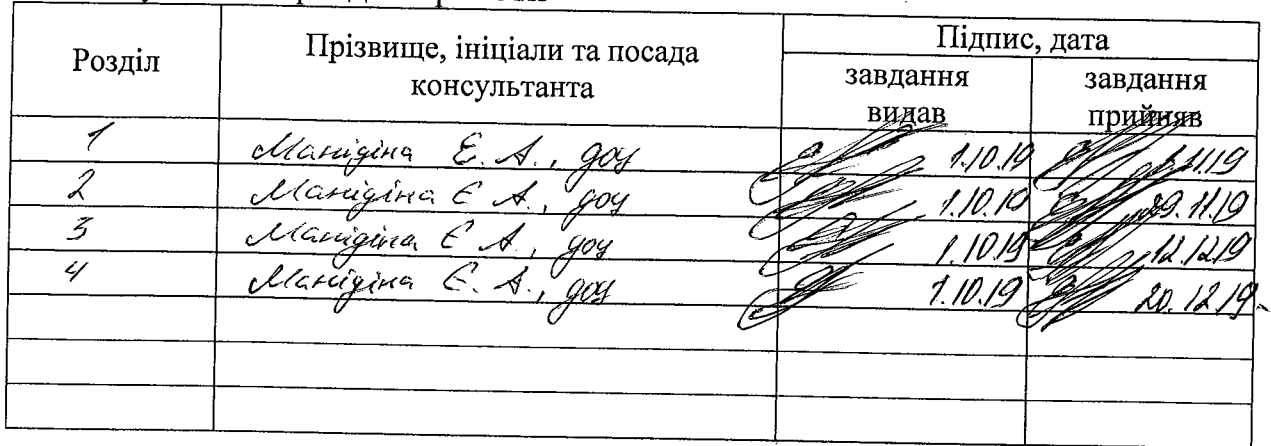 Розділ Прізвище, ініціали та посада консультанта Підпис, дата
завдання видав завдання прийняв
1 Манідіна Є. А., доц 1.10.19
2 Манідіна Є А., доц 1.10.19 29.11.19
3 Манідіна Є А., доц 1.10.19 12.12.19
4 Манідіна Є. А., доц 1.10.19 20.12.19